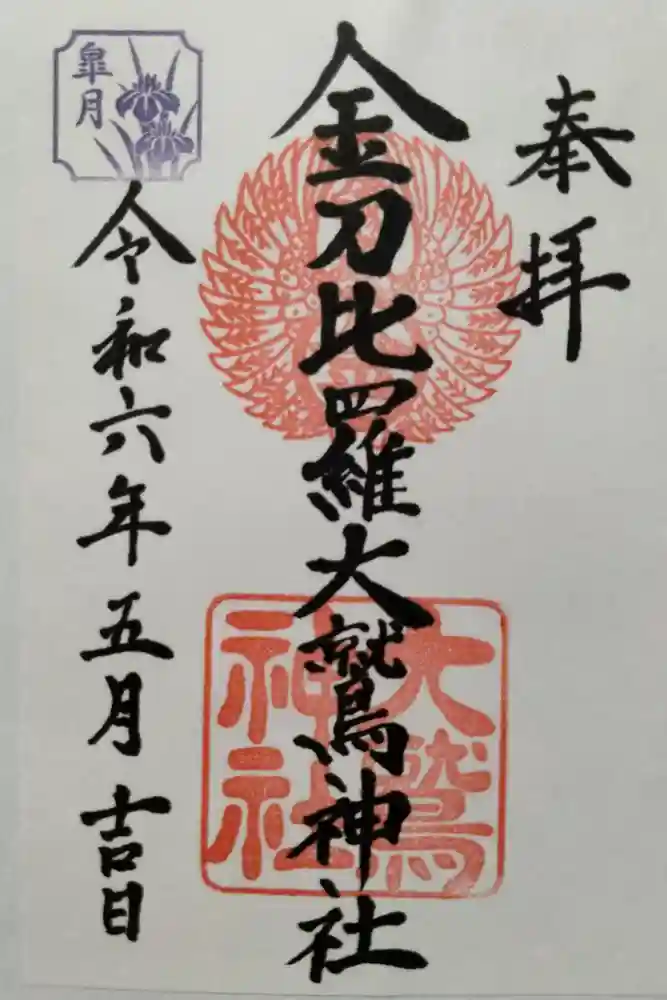 奉拝
金刀比羅大鷲神社
大鷲
神社
皐月
令和六年五月吉日